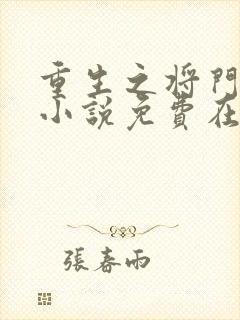 重生之将門
小說免費在
張春雨